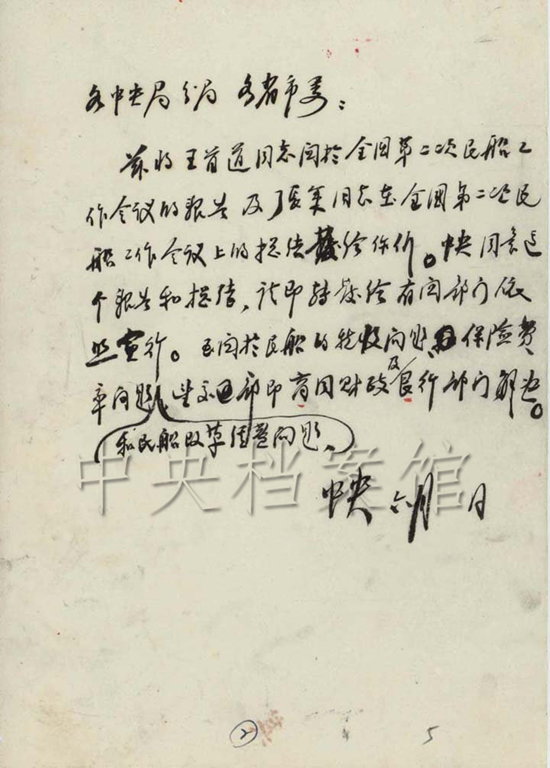 各中央局分局 各省市委:
兹将王首道同志关於全国第二次民船工
作会议的报告及同志在全国第二次民
船工作会议上的总结发给你们。中央同意这
个报告和总结,请即转发给有关部门依
照实行。至关於民船的税收问题、保险费
率问题,望交通部即商同财政及银行部门解决。
和民船改革调整问题、
中央 六月 日
中央档案馆
2 5